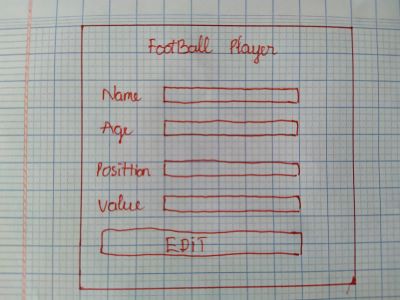 FootBall Player
Name
Age
Posittion
Value
EDiT